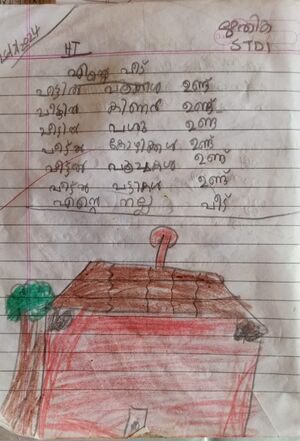 HT
STD I
എന്റെ വീട്
വീട്ടിൽ ഉണ്ട്
വീട്ടിൽ കിണർ ഉണ്ട്
വീട്ടിൽ പശു ഉണ്ട്
വീട്ടിൽ കോഴികൾ ഉണ്ട്
വീട്ടിൽ ഉണ്ട്
വീട്ടിൽ പട്ടികൾ ഉണ്ട്
എന്റെ നല്ല വീട്